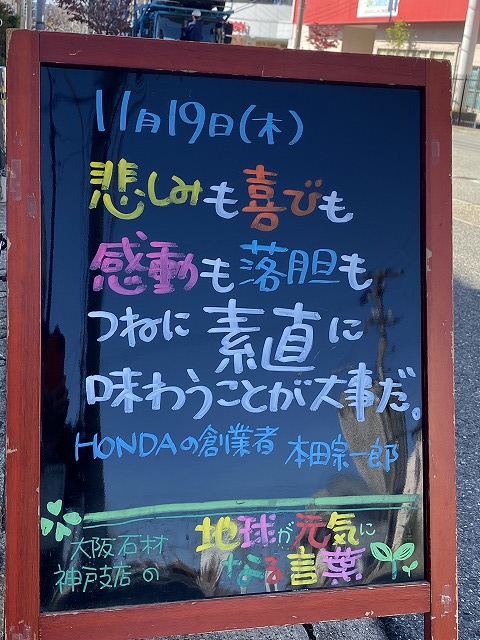 11月19日(木)
悲しみも喜びも
感動も落胆も
つねに素直に
味わうことが大事だ。
HONDAの創業者 本田宗一郎
大阪石材
神戸支店の
地球が元気に
なる言葉